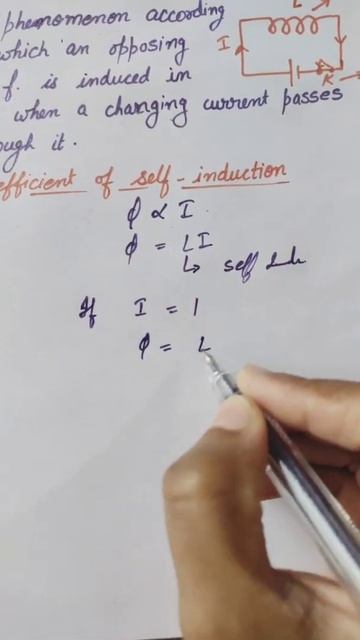 phenomenon according
which an opposing
f. is induced in
when a changing current passes
ough it.
L
I
K
efficient of self-induction
φ ∝ I.
φ = LI
↳ self
If I = 1
φ = L